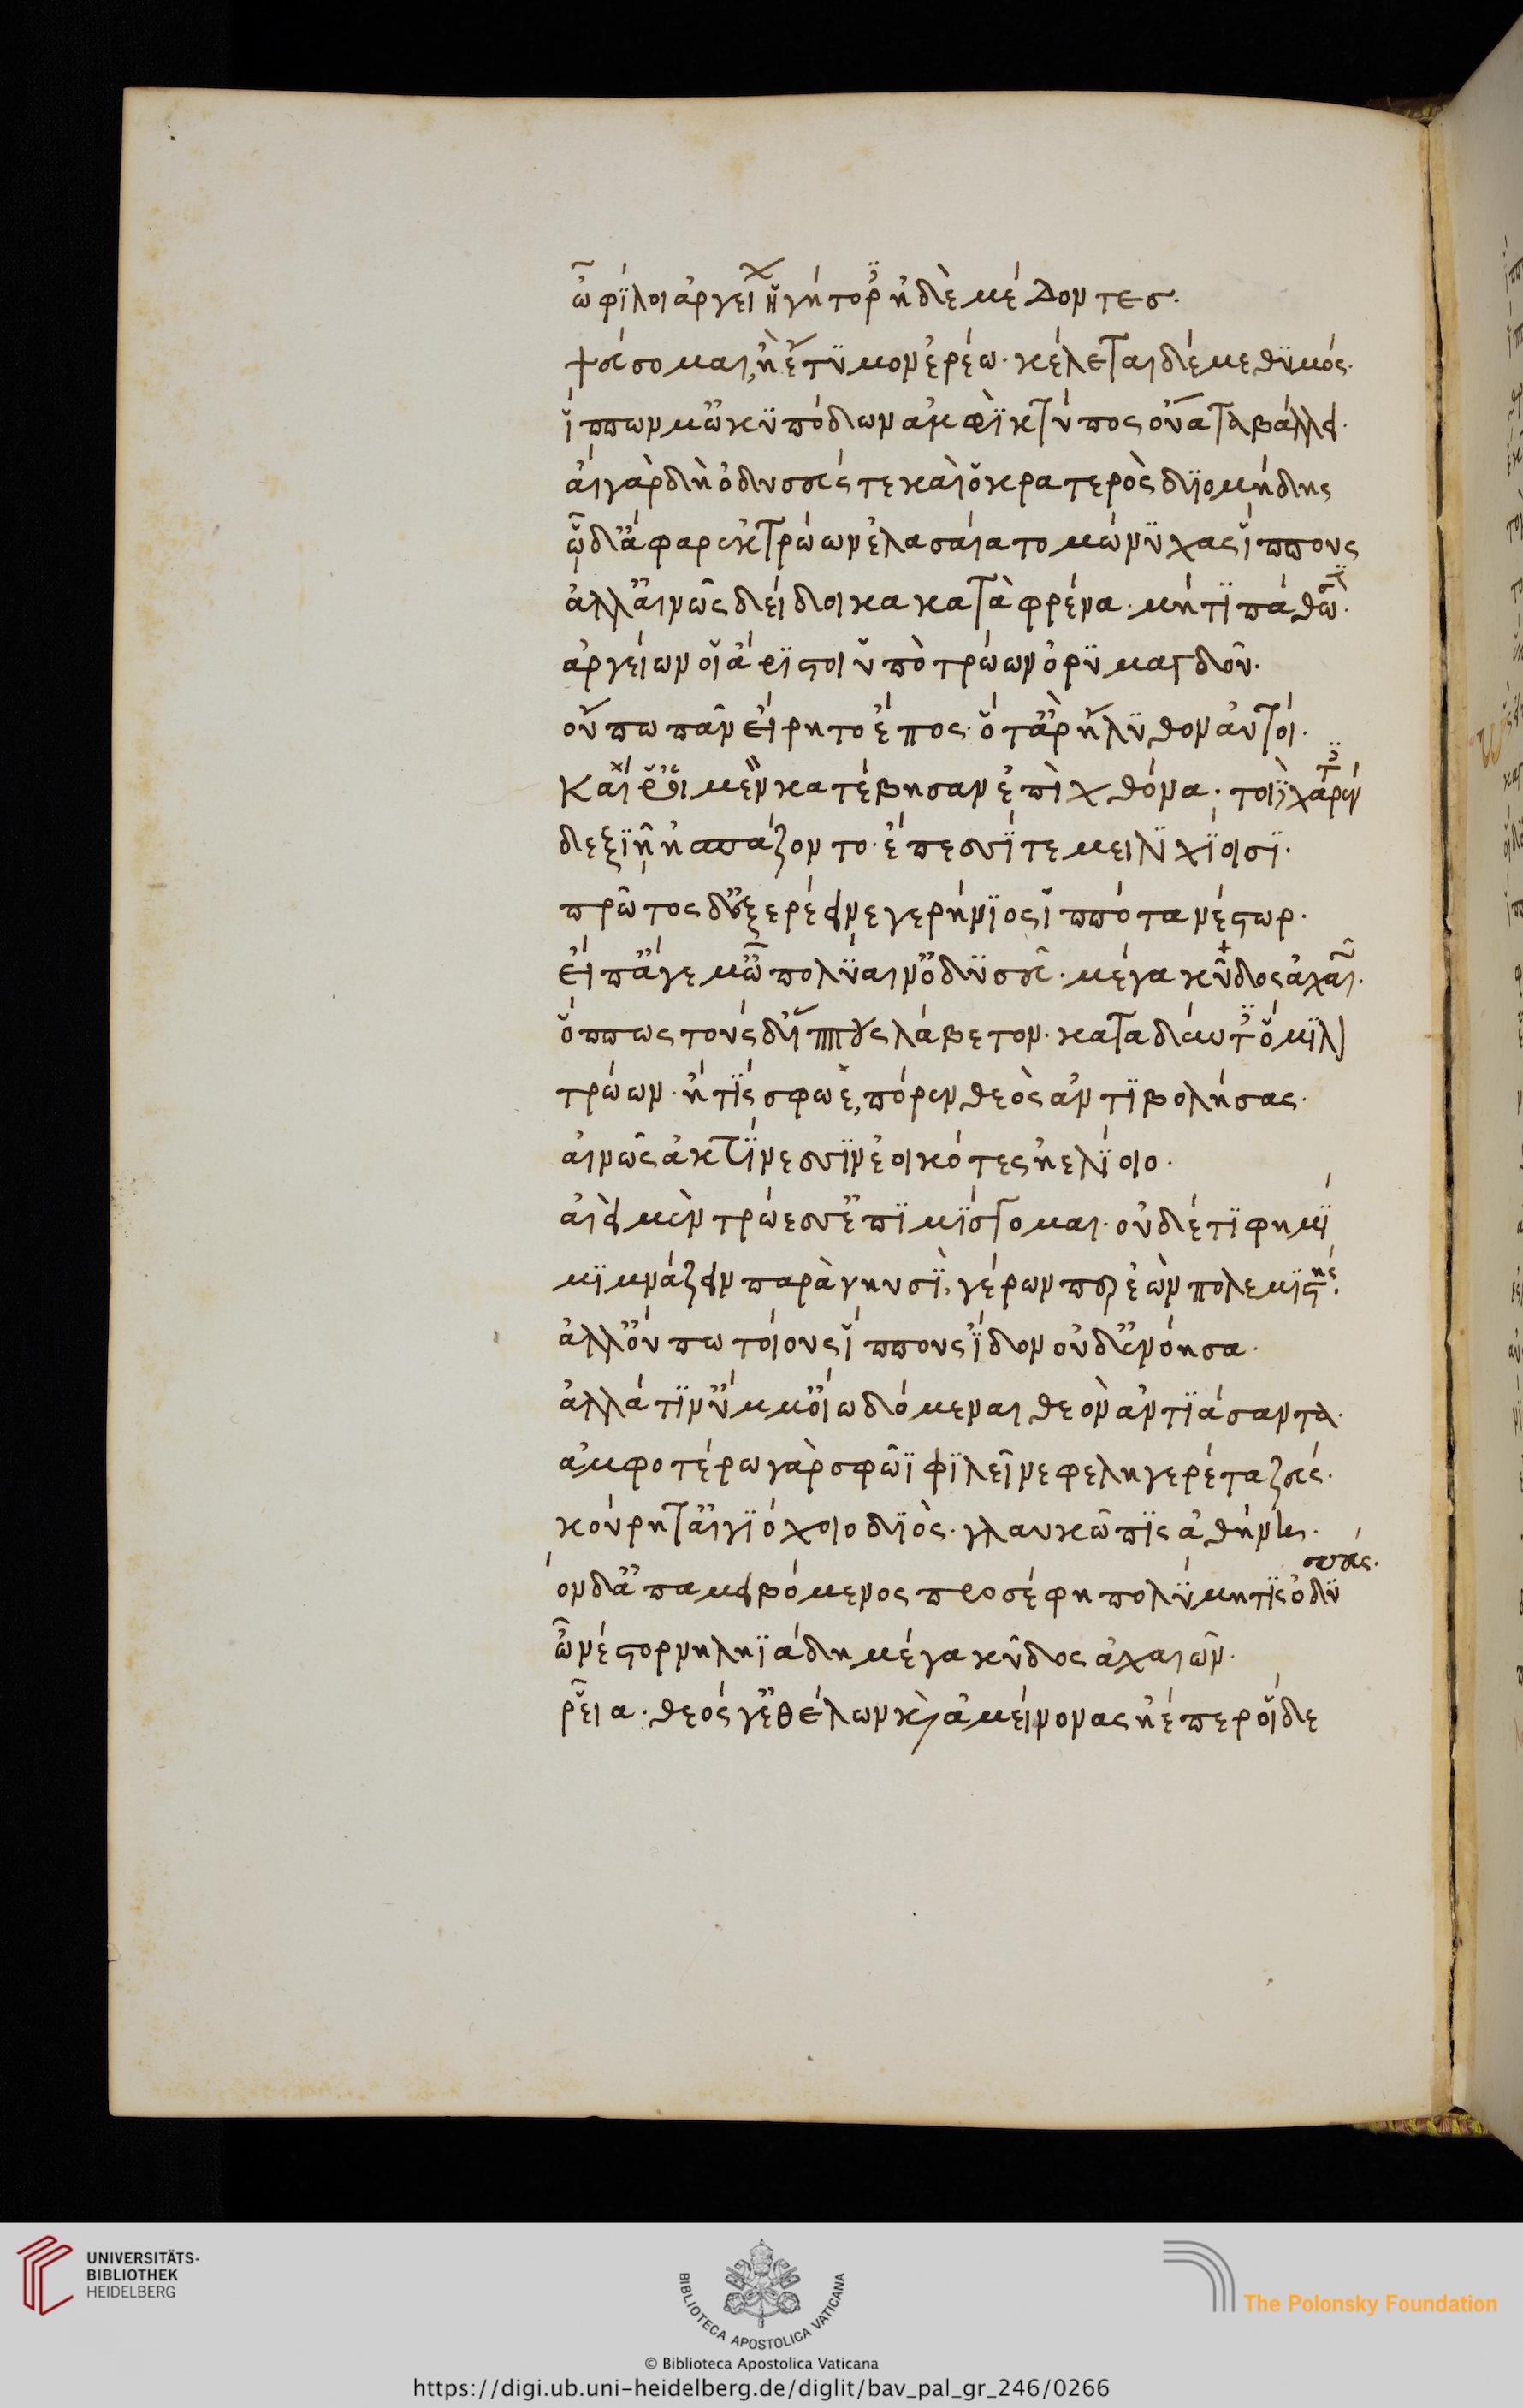 ὦ φίλοι ἀργείων ἡγήτορες ἠδὲ μέδοντες·
ψεύσομαι, ἢ ἔτυμον ἐρέω· κέλεται δέ με θυμός·
ἵππων μ' ὠκυπόδων ἀμφὶ κτύπος οὔατα βάλλει·
αἲ γὰρ δὴ ὀδυσσεύς τε καὶ ὁ κρατερὸς διομήδης
ὧδ' ἄφαρ ἐκ τρώων ἐλασαίατο μώνυχας ἵππους
ἀλλ' αἰνῶς δείδοικα κατὰ φρένα· μή τι πάθωσιν·
ἀργείων οἱ ἄριστοι ὑπὸ τρώων ὀρυμαγδοῦ·
οὔπω πᾶν εἴρητο ἔπος· ὅτ' ἄρ' ἤλυθον αὐτοί·
καί ῥ' οἱ μὲν κατέβησαν ἐπὶ χθόνα· τοὶ δὲ χαρέντες
δεξιῇ ἠσπάζοντο· ἔπεσσί τε μειλιχίοισι·
πρῶτος δ' ἐξερέεινε γερήνιος ἱππότα νέστωρ·
εἴπ' ἄγε μ' ὦ πολύαιν' ὀδυσεῦ· μέγα κῦδος ἀχαιῶν·
ὅππως τούσδ' ἵππους λάβετον· καταδύντες ὅμιλον
τρώων· ἤ τίς σφωε, πόρεν θεὸς ἀντιβολήσας·
αἰνῶς ἀκτίνεσσιν ἐοικότες ἠελίοιο·
αἰεὶ μὲν τρώεσσ' ἐπιμίσγομαι· οὐδέ τι φημί
μιμνάζειν παρὰ νηυσὶ, γέρων περ ἐὼν πολεμιστής·
ἀλλ' οὔπω τοίους ἵππους ἴδον οὐδ' ἐνόησα·
ἀλλά τιν' ὔμμ' οἴω δόμεναι θεὸν ἀντιάσαντα·
ἀμφοτέρω γὰρ σφῶι φιλεῖ νεφεληγερέτα ζεύς·
κούρη τ' αἰγιόχοιο διὸς· γλαυκῶπις ἀθήνη·
τὸν δ' ἀπαμειβόμενος προσέφη πολύμητις ὀδυσσεύς·
ὦ νέστορ νηληϊάδη μέγα κῦδος ἀχαιῶν·
ῥεῖα· θεός γ' ἐθέλων καὶ ἀμείνονας ἠέ περ οἵδε
UNIVERSITÄTS-
BIBLIOTHEK
HEIDELBERG
BIBLIOTECA APOSTOLICA VATICANA
The Polonsky Foundation
© Biblioteca Apostolica Vaticana
https://digi.ub.uni-heidelberg.de/diglit/bav_pal_gr_246/0266